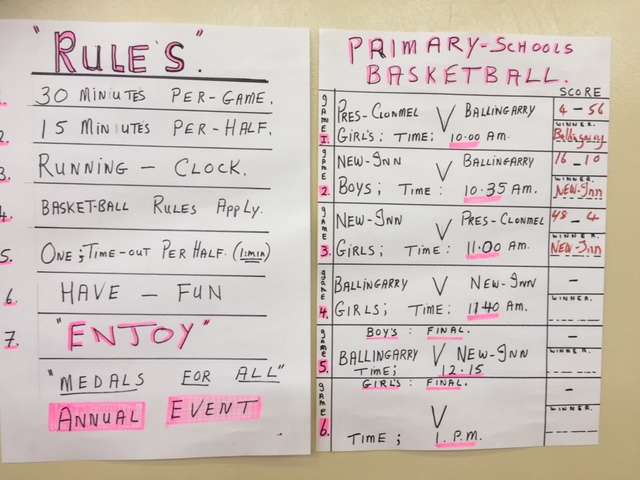 "RULE'S".
1. 30 MINUTES PER-GAME.
2. 15 MINUTES PER-HALF.
3. RUNNING - CLOCK.
4. BASKET-BALL RULES APPLY.
5. ONE; TIME-OUT PER HALF. (1:MIN)
6. HAVE - FUN
7. "ENJOY"
"MEDALS FOR ALL"
ANNUAL EVENT
PRIMARY-SCHOOLS
BASKETBALL.
SCORE
GAME 1. PRES-CLONMEL V BALLINGARRY 4 - 56
GIRL'S; TIME; 10.00 AM. WINNER. Ballingarry
GAME 2. NEW-INN V BALLINGARRY 16 - 10
BOYS; TIME: 10.35 AM. WINNER. NEW-INN
GAME 3. NEW-INN V PRES-CLONMEL 48 - 4
GIRLS; TIME: 11.00 AM. WINNER. NEW-INN
GAME 4. BALLINGARRY V NEW-INN -
GIRLS; TIME: 11.40 AM. WINNER.
BOY'S: FINAL. -
GAME 5. BALLINGARRY V NEW-INN WINNER.
TIME; 12.15
GIRL'S: FINAL. -
GAME 6. V WINNER.
TIME; 1. P.M.